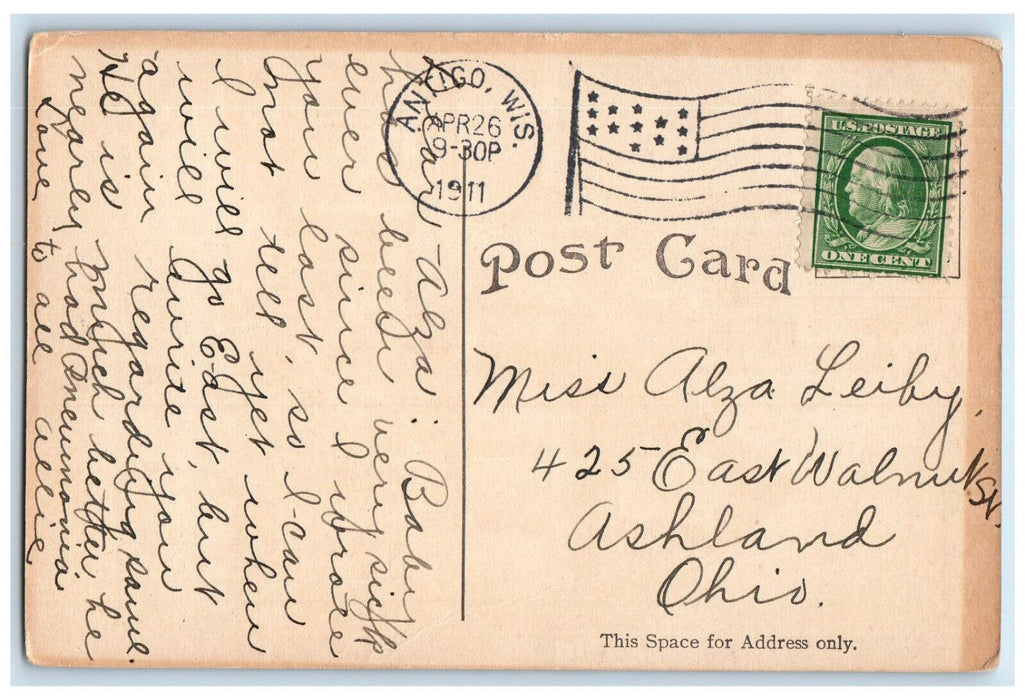 ANTIGO, WIS.
APR 26
9-30P
1911
U.S. POSTAGE
ONE CENT
Post Card
Miss Alza Leiby,
425 East Walnut St.
Ashland
Ohio.
This Space for Address only.
Dear Alza: Baby
has been very sick
ever since I wrote
you last, so I can
not tell yet when
I will go East, but
will write you
again regarding same.
He is much better, he
nearly had Pneumonia
Love to all Allie